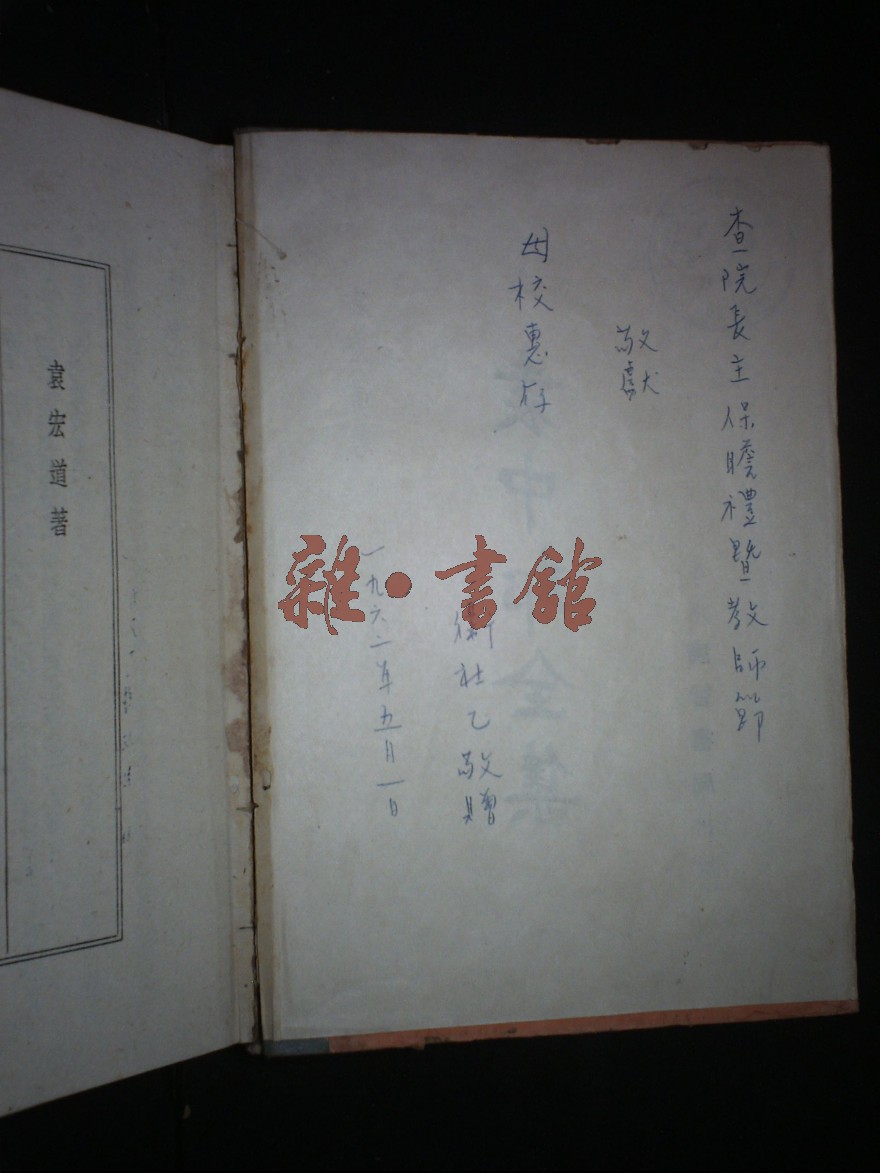 查院長主保瞻禮暨教師節
敬獻
母校惠存
社乙敬贈
一九六二年五月一日
雜·書館
全集
袁宏道著